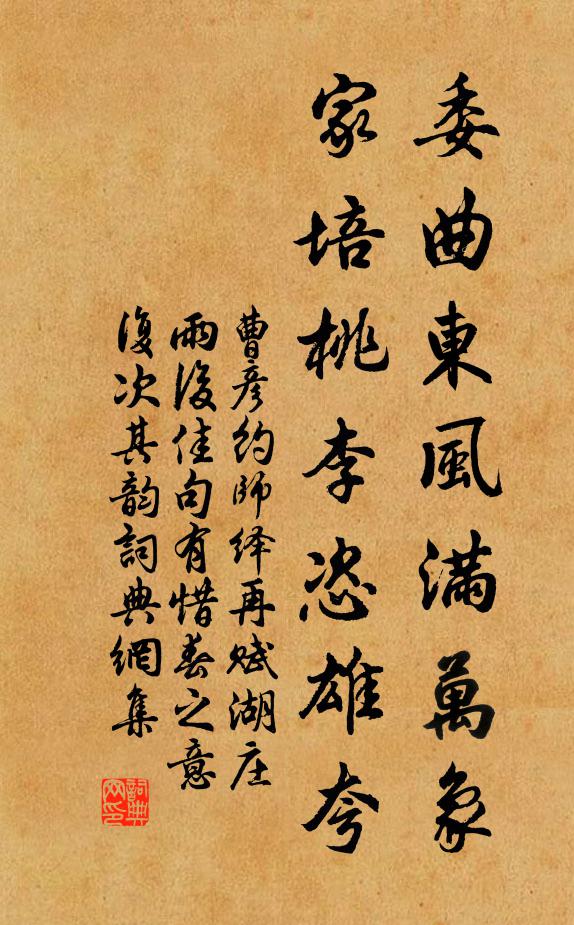 委曲東風滿萬象
家培桃李恣雄夸
曹彦約師绎再赋湖庄
雨後佳句有惜春之意
復次其韵詞典網集
詞典网印